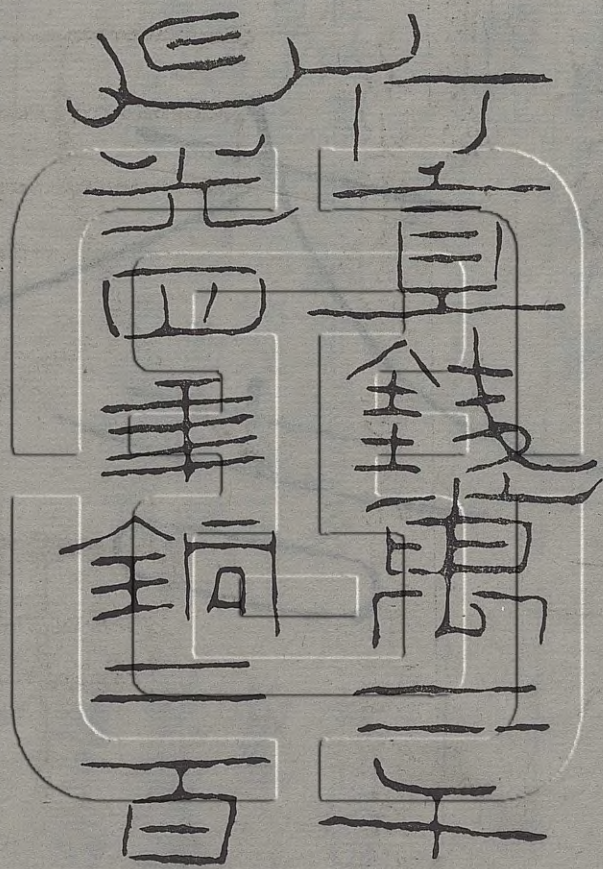 延光四年銅二百
斤直錢萬二千